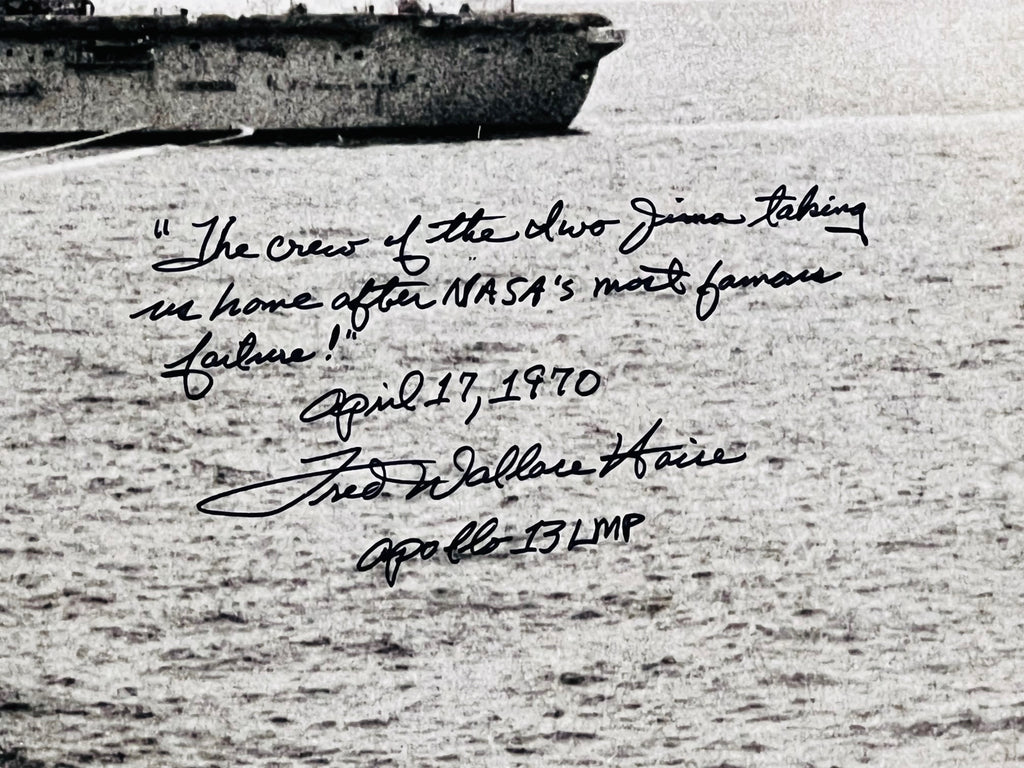 "The crew of the Iwo Jima taking
us home after NASA's most famous
failure!"
April 17, 1970
Fred Wallace Haise
Apollo 13 LMP